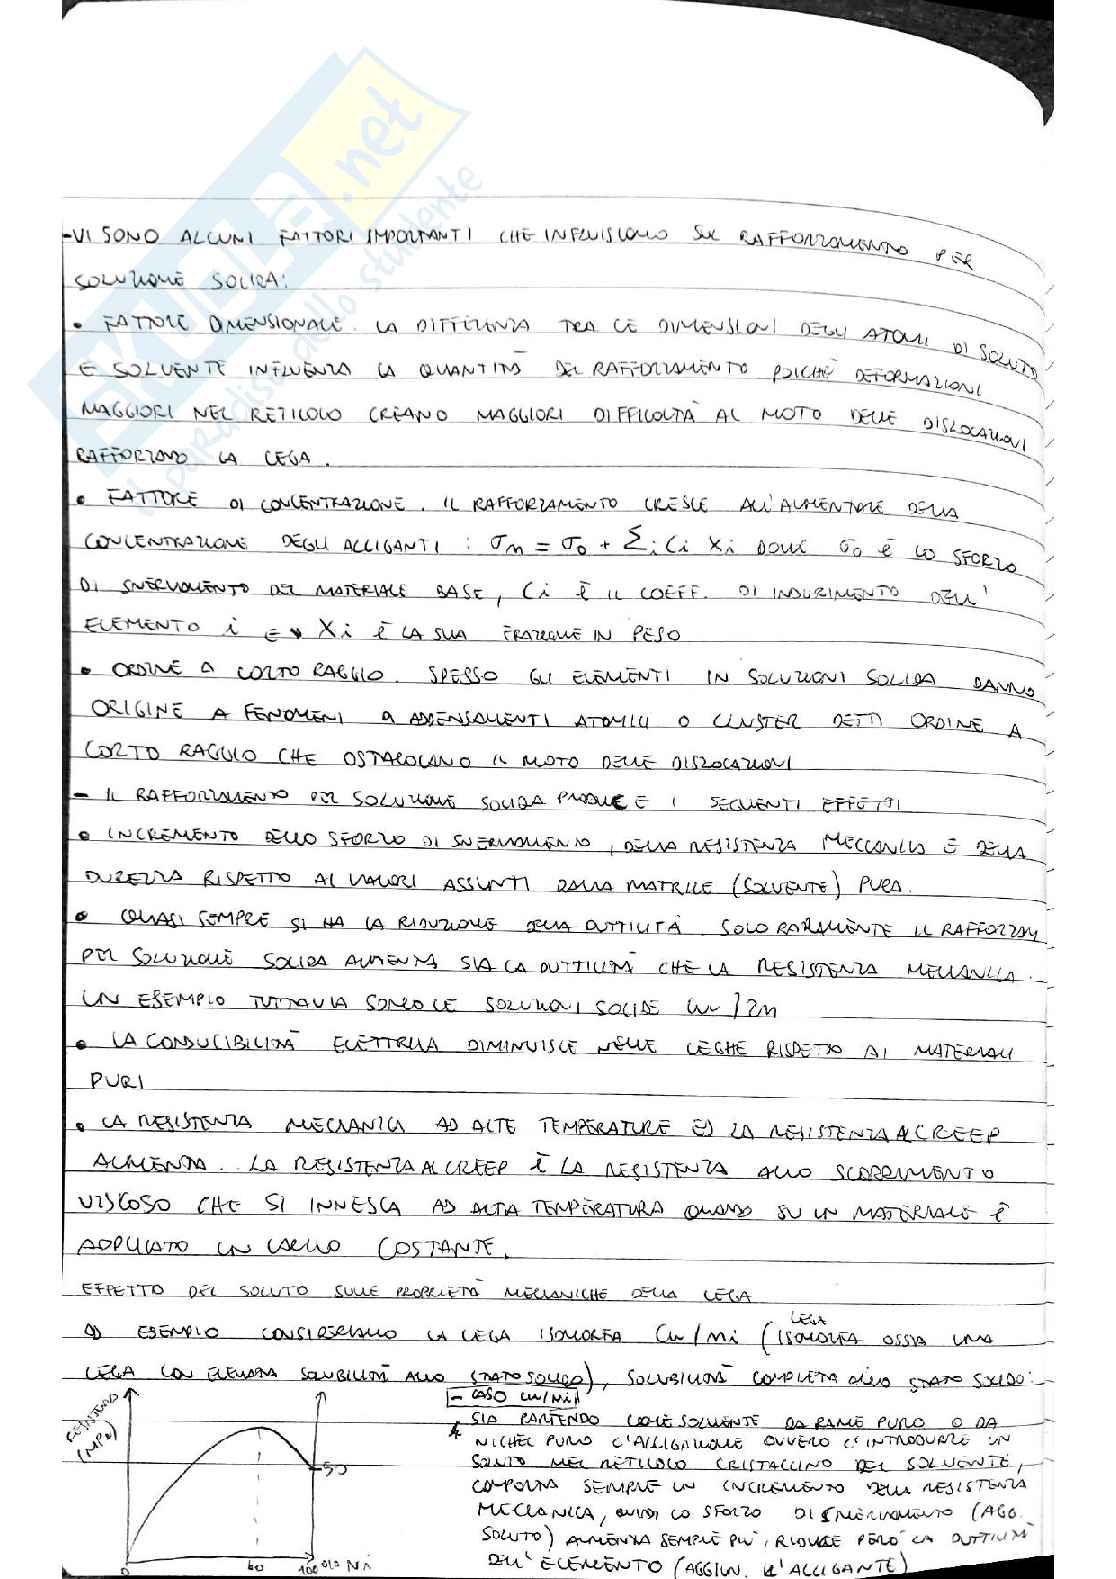 SKUOLA.net
il paradiso dello studente
- VI SONO ALCUNI FATTORI IMPORTANTI CHE INFLUISCONO SUL RAFFORZAMENTO PER
SOLUZIONE SOLIDA:
• FATTORE DIMENSIONALE. LA DIFFERENZA TRA LE DIMENSIONI DEGLI ATOMI DI SOLUTO
E SOLVENTE INFLUENZA LA QUANTITÀ DEL RAFFORZAMENTO POICHÉ DEFORMAZIONI
MAGGIORI NEL RETICOLO CREANO MAGGIORI DIFFICOLTÀ AL MOTO DELLE DISLOCAZIONI
RAFFORZANDO LA LEGA.
• FATTORE DI CONCENTRAZIONE. IL RAFFORZAMENTO CRESCE ALL'AUMENTARE DELLA
CONCENTRAZIONE DEGLI ALLIGANTI: σn = σ0 + Σi Ci Xi DOVE σ0 È LO SFORZO
DI SNERVAMENTO DEL MATERIALE BASE, Ci È IL COEFF. DI INDURIMENTO DELL'
ELEMENTO i E Xi È LA SUA FRAZIONE IN PESO
• ORDINE A CORTO RAGGIO. SPESSO GLI ELEMENTI IN SOLUZIONI SOLIDA DANNO
ORIGINE A FENOMENI DI ADDENSAMENTI ATOMICI O CLUSTER DETTI ORDINE A
CORTO RAGGIO CHE OSTACOLANO IL MOTO DELLE DISLOCAZIONI
- IL RAFFORZAMENTO PER SOLUZIONE SOLIDA PRODUCE I SEGUENTI EFFETTI
• INCREMENTO DELLO SFORZO DI SNERVAMENTO, DELLA RESISTENZA MECCANICA E DELLA
DUREZZA RISPETTO AI VALORI ASSUNTI DALLA MATRICE (SOLVENTE) PURA.
• QUASI SEMPRE SI HA LA RIDUZIONE DELLA DUTTILITÀ. SOLO RARAMENTE IL RAFFORZAM
PER SOLUZIONE SOLIDA AUMENTA SIA LA DUTTILITÀ CHE LA RESISTENZA MECCANICA.
UN ESEMPIO TUTTAVIA SONO LE SOLUZIONI SOLIDE Cu/Zn
• LA CONDUCIBILITÀ ELETTRICA DIMINUISCE NELLE LEGHE RISPETTO AI MATERIALI
PURI
• LA RESISTENZA MECCANICA AD ALTE TEMPERATURE ED LA RESISTENZA AL CREEP
AUMENTA. LA RESISTENZA AL CREEP È LA RESISTENZA ALLO SCORRIMENTO
VISCOSO CHE SI INNESCA AD ALTA TEMPERATURA QUANDO SU UN MATERIALE È
APPLICATO UN CARICO COSTANTE.
EFFETTO DEL SOLUTO SULLE PROPRIETÀ MECCANICHE DELLA LEGA
AD ESEMPIO CONSIDERIAMO LA LEGA ISOMORFA Cu/Ni (LEGA ISOMORFA OSSIA UNA
LEGA CON ELEVATA SOLUBILITÀ ALLO STATO SOLIDO), SOLUBILITÀ COMPLETA ALLO STATO SOLIDO:
- CASO Cu/Ni
SIA PARTENDO COME SOLVENTE DA RAME PURO O DA
NICHEL PURO L'ALLIGAZIONE OVVERO L'INTRODURRE UN
SOLUTO NEL RETICOLO CRISTALLINO DEL SOLVENTE,
COMPORTA SEMPRE UN INCREMENTO DELLA RESISTENZA
MECCANICA, QUINDI LO SFORZO DI SNERVAMENTO (AGG.
SOLUTO) AUMENTA SEMPRE PIÙ, RIDUCE PERÒ LA DUTTILITÀ
DELL'ELEMENTO (AGGIUN. L'ALLIGANTE)
(MPa)
50
0
60
100 % Ni